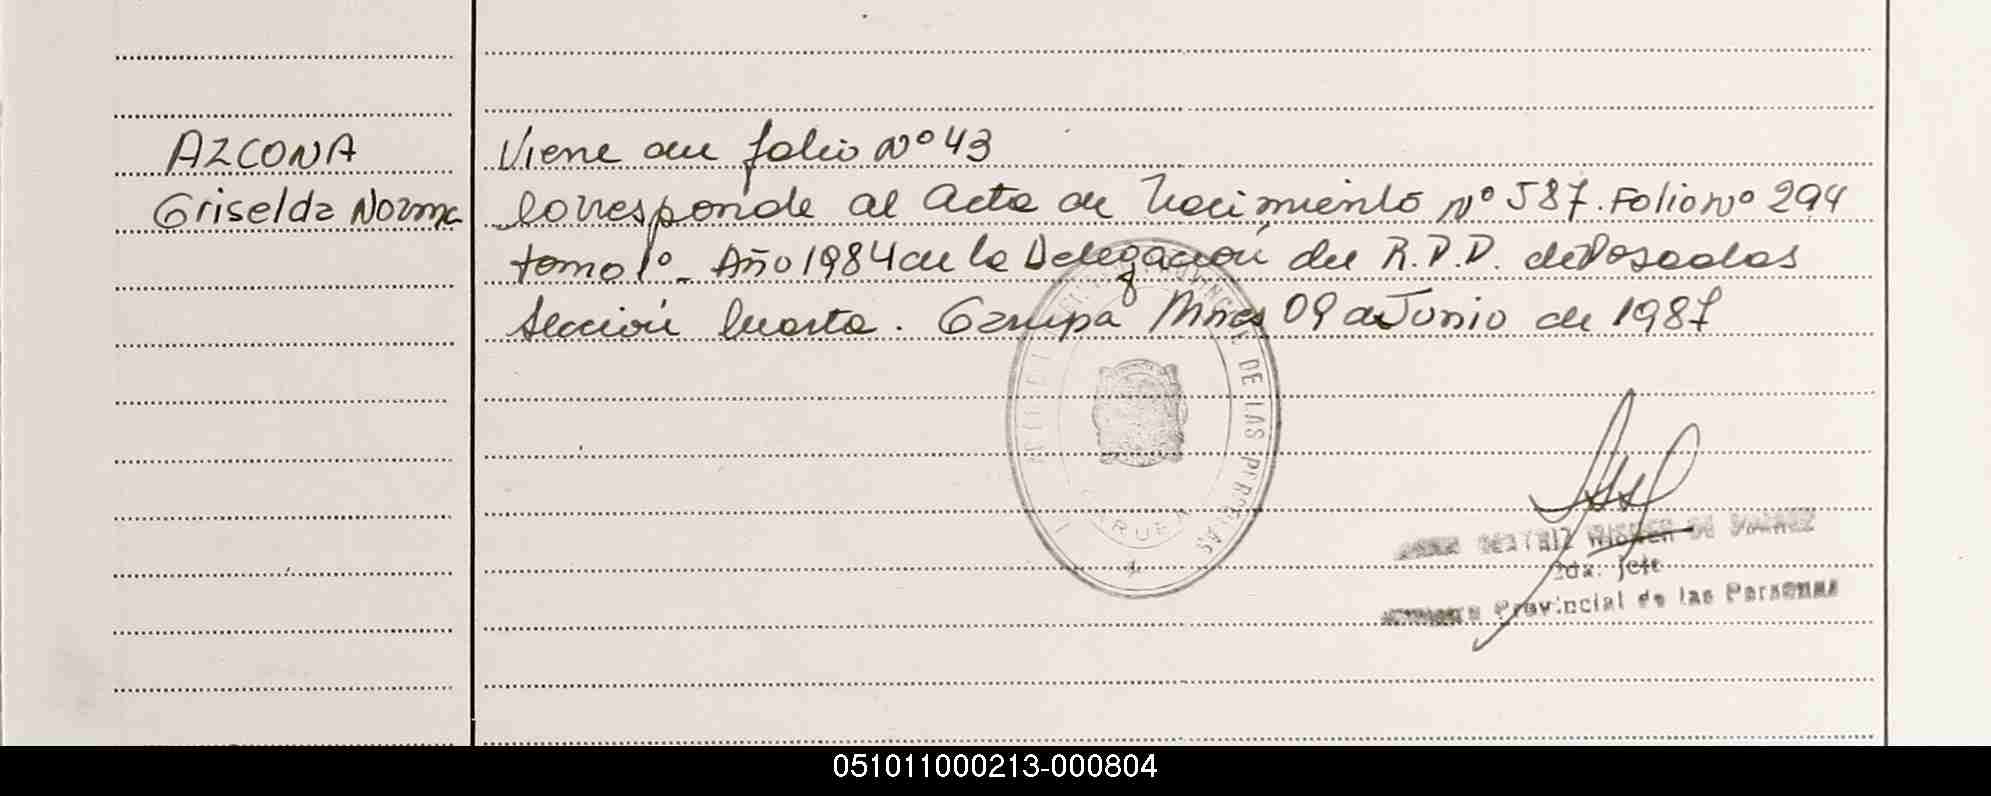 AZCONA
Griselda Norma
Viene del folio Nº 43
Corresponde al Acta de Nacimiento Nº 587. Folio nº 294
tomo 1º - Año 1984 de la Delegación del R.P.P. de Posadas
Sección Cuarta. Garupá Mnes 09 de Junio de 1987
DE LAS PERSONAS
BEATRIZ DE
2da. Jefe
Provincial de las Personas
051011000213-000804